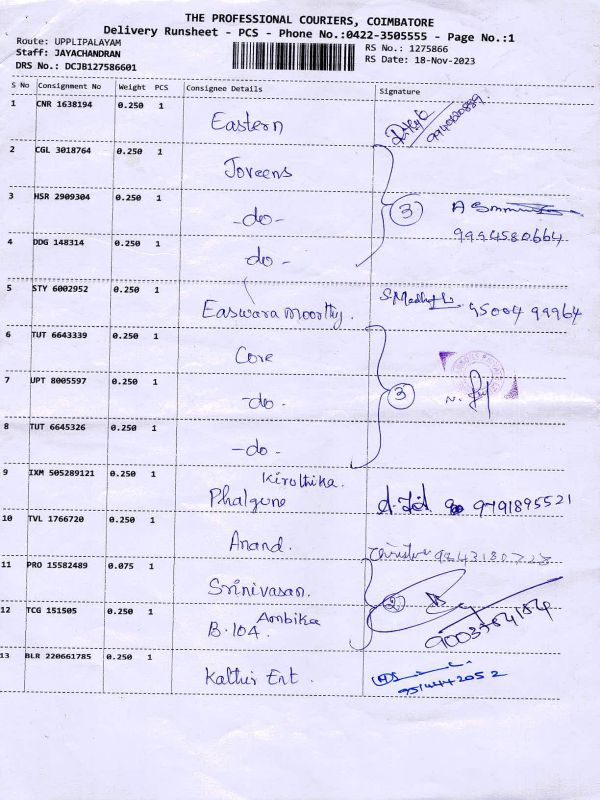 THE PROFESSIONAL COURIERS, COIMBATORE
Delivery Runsheet - PCS - Phone No.:0422-3505555 - Page No.:1
Route: UPPLIPALAYAM
RS No.: 1275866
Staff: JAYACHANDRAN
RS Date: 18-Nov-2023
DRS No.: DCJB127586601
S No Consignment No Weight PCS Consignee Details Signature
1 CNR 1638194 0.250 1 Eastern
2 CGL 3018764 0.250 1 Joveens
3 HSR 2909304 0.250 1 -do- 3
4 DDG 148314 0.250 1 -do- 9994580664
5 STY 6002952 0.250 1 Easwara moorthy. 95004 99964
6 TUT 6643339 0.250 1 Core
7 UPT 8005597 0.250 1 -do- 3
8 TUT 6645326 0.250 1 -do-
9 IXM 505289121 0.250 1 Kiruthika. Phalgune 9791895521
10 TVL 1766720 0.250 1 Anand.
11 PRO 15582489 0.075 1 Srinivasan. 2
12 TCG 151505 0.250 1 Ambika B-104
13 BLR 220661785 0.250 1 Kalthis Ent.